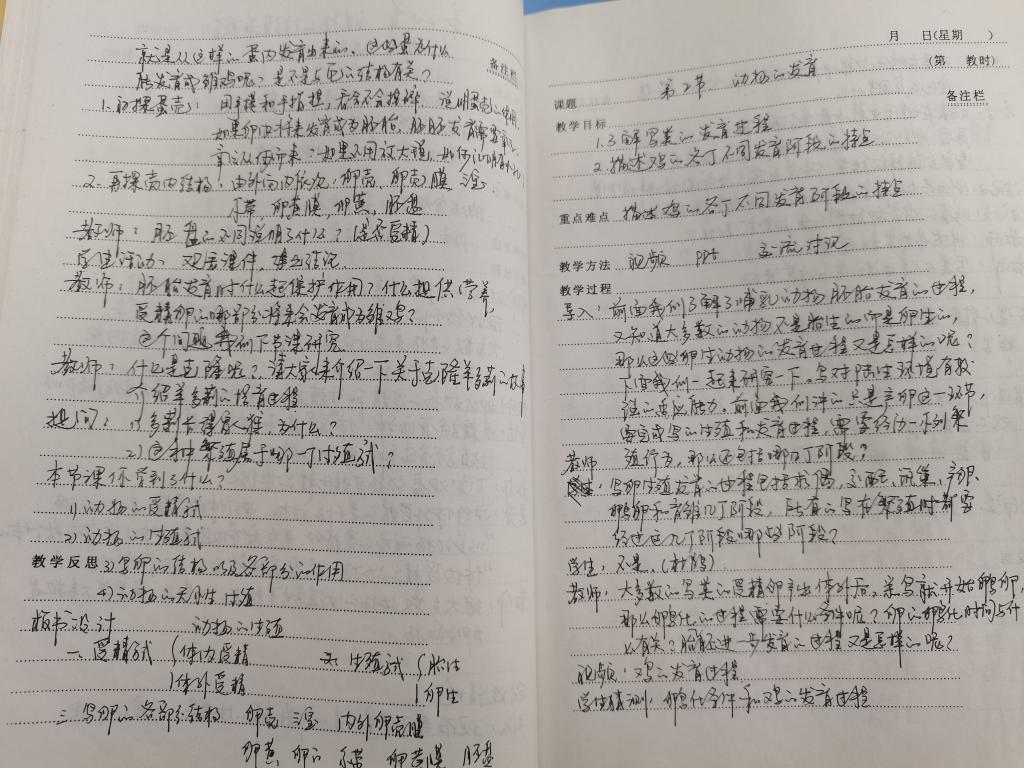 就是从这样的蛋内发育出来的。这的蛋为什么
能发育成雏鸡呢？是不是与它的结构有关？
备注栏
1. 观察蛋壳：用手摸和手指捏，看会不会捏碎。说明蛋壳的作用
如果卵内将来发育成为胚胎，胚胎发育需要氧气，
氧气从何而来？如果不用放大镜，如何证明有气孔
2. 再探壳内结构：由外向内依次：卵壳、卵壳膜、气室
系带，卵黄膜，卵黄，胚盘
教师：胚盘的不同说明了什么？（是否受精）
学生活动：观察课件，得出结论
教师：胚胎发育时什么起保护作用？什么提供营养，
受精卵的哪部分将来会发育成为雏鸡？
这个问题我们下节课研究
教师：什么是克隆呢？请大家来介绍一下关于克隆羊多莉的故事
介绍羊多莉的培育过程
提问：1）多莉长得像谁，为什么？
2）这种繁殖属于哪一个生殖方式？
本节课你学到了什么？
1）动物的受精方式
2）动物的生殖方式
教学反思 3）鸟卵的结构以及各部分的作用
4）动物的无性生殖
板书设计 动物的生殖
一、受精方式 {体内受精 二、生殖方式 {胎生
体外受精 卵生
三、鸟卵的各部分结构 卵壳 气室 内外卵壳膜
卵黄、卵白 系带 卵黄膜 胚盘
月 日(星期 )
(第 教时)
课题 第2节 动物的发育
备注栏
教学目标
1. 了解鸟类的发育过程
2. 描述鸡的各个不同发育阶段的特点
重点难点 描述鸡的各个不同发育阶段的特点
教学方法 视频 PPT 交流讨论
教学过程
导入：前面我们了解了哺乳动物胚胎发育的过程，
又知道大多数的动物不是胎生的而是卵生的，
那么这些卵生动物的发育过程又是怎样的呢？
下面我们一起来研究一下。鸟对陆生环境有较
强的适应能力。前面我们讲的只是产卵这一环节，
要完成鸟的生殖和发育过程，需要经历一系列繁
教师 殖行为，那么还包括哪几个阶段？
鸟卵生殖发育的过程包括求偶、交配、筑巢、产卵、
孵卵和育雏几个阶段，所有的鸟在繁殖时都要
经过这几个阶段哪些阶段？
学生：不是。（杜鹃）
教师：大多数的鸟类的受精卵产出体外后，亲鸟就开始孵卵，
那么孵化的过程需要什么条件呢？卵的孵化时间与什
么有关？胎胚进一步发育的过程又是怎样的呢？
视频：鸡的发育过程
学生猜测：孵化条件和鸡的发育过程